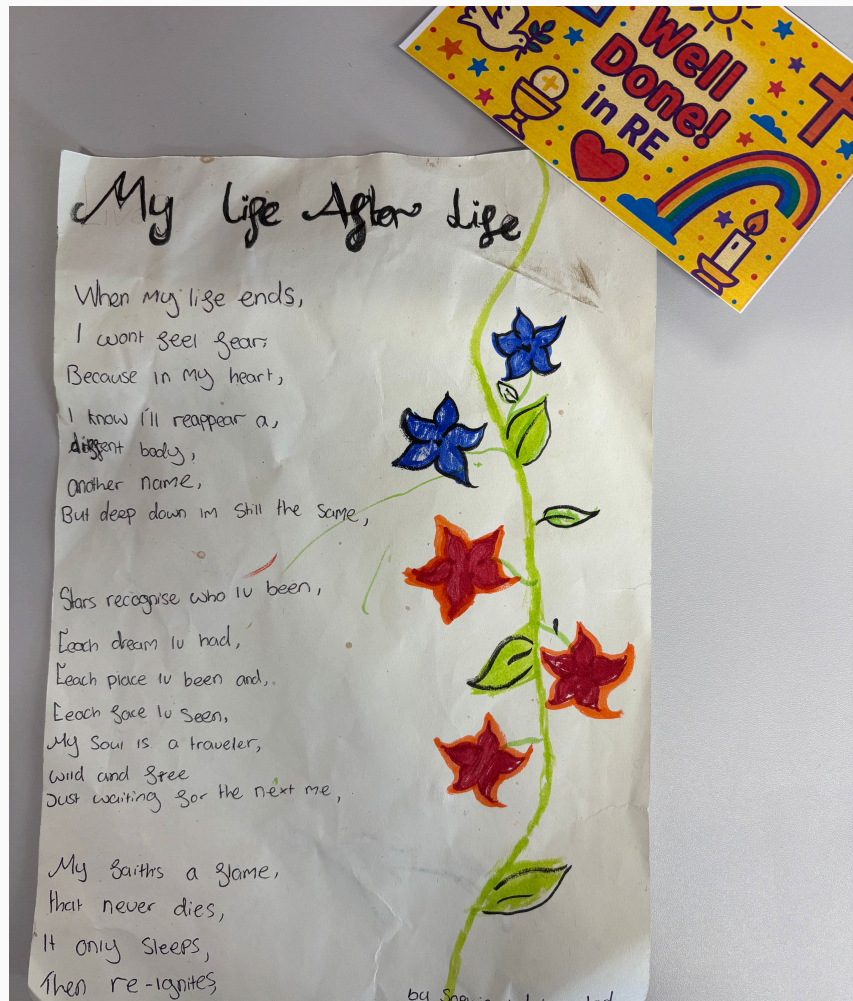 Well
Done!
in RE
My life After life
When My life ends,
I wont feel fear,
Because in My heart,
I know i'll reappear a,
diffrent body,
another name,
But deep down im still the same,
Stars recognise who iv been,
Eeach dream iv had,
Eeach place iv been and,
Eeach face iv seen,
My Soul is a traveler,
wild and free
Just waiting for the next me,
My faiths a flame,
that never dies,
It only sleeps,
Then re-ignites,
by